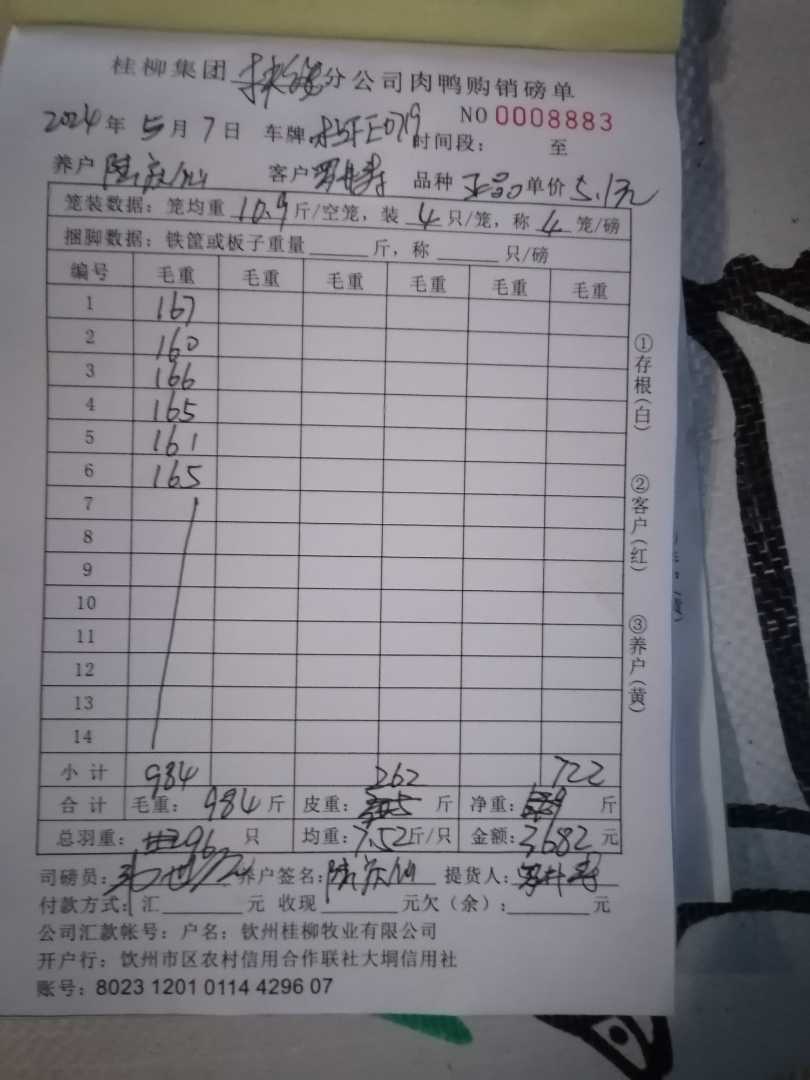 桂柳集团 分公司肉鸭购销磅单
NO 0008883
2024年5月7日 车牌: 时间段: 至
养户 客户 品种 正品 单价 5.1元
笼装数据:笼均重 10.9 斤/空笼,装 4 只/笼,称 4 笼/磅
捆脚数据:铁筐或板子重量______斤,称______只/磅
编号 毛重 毛重 毛重 毛重 毛重 毛重
1 167
2 160
3 166
4 165
5 161
6 165
7
8
9
10
11
12
13
14
小计 984 262 722
合计 毛重: 984 斤 皮重: 斤 净重: 斤
总羽重: 96 只 均重: 7.52 斤/只 金额: 3682 元
司磅员: 养户签名: 提货人:
付款方式:汇______元 收现______元欠(余):______元
公司汇款帐号:户名:钦州桂柳牧业有限公司
开户行:饮州市区农村信用合作联社大垌信用社
账号:8023 1201 0114 4296 07
①存根(白)
②客户(红)
③养户(黄)